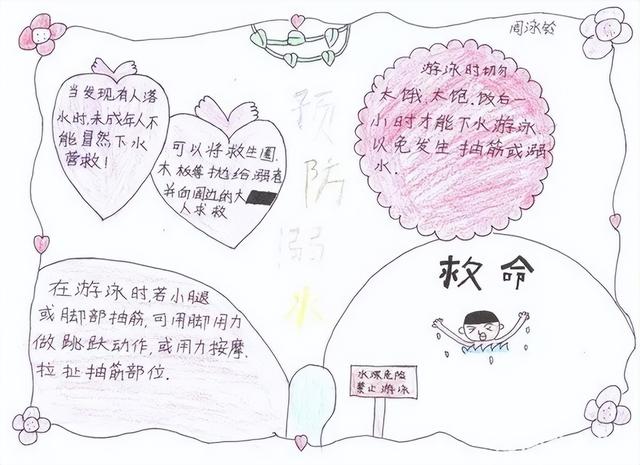 预防溺水
当发现有人落
水时,未成年人不
能冒然下水
营救!
可以将救生圈,
木板等抛给溺者
并向周边的大
人求救
游泳时切勿
太饿,太饱.饭后一
小时才能下水游泳
以免发生抽筋或溺
水.
在游泳时,若小腿
或脚部抽筋,可用脚用力
做跳跃动作,或用力按摩.
拉扯抽筋部位.
救命
水深危险
禁止游泳